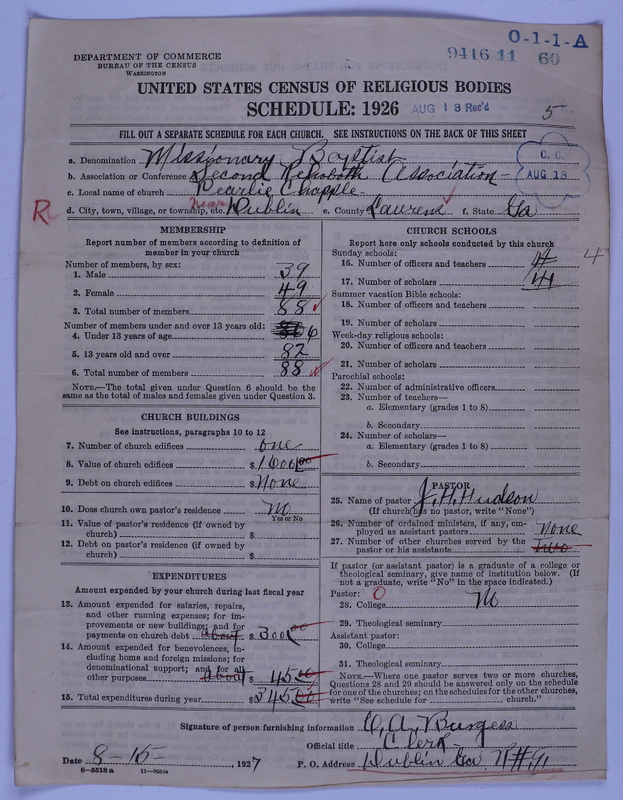 O-1-1-A
9416 11 60
DEPARTMENT OF COMMERCE
BUREAU OF THE CENSUS
WASHINGTON
UNITED STATES CENSUS OF RELIGIOUS BODIES
SCHEDULE: 1926 AUG 18 Rec'd 5
FILL OUT A SEPARATE SCHEDULE FOR EACH CHURCH. SEE INSTRUCTIONS ON THE BACK OF THIS SHEET
a. Denomination Missionary Baptist
b. Association or Conference Second Rehoboth Association
c. Local name of church Pearlie Chapple
C. C. AUG 18
R d. City, town, village, or township, etc. Near Dublin e. County Laurens f. State Ga
MEMBERSHIP
Report number of members according to definition of
member in your church
Number of members, by sex:
1. Male 39
2. Female 49
3. Total number of members 88
Number of members under and over 13 years old:
4. Under 13 years of age 6
5. 13 years old and over 82
6. Total number of members 88
NOTE.—The total given under Question 6 should be
same as the total of males and females given under Question 3.
CHURCH BUILDINGS
See instructions, paragraphs 10 to 12
7. Number of church edifices one
8. Value of church edifices $1000.00
9. Debt on church edifices $None
10. Does church own pastor's residence? No
Yes or No
11. Value of pastor's residence (if owned by
church) $
12. Debt on pastor's residence (if owned by
church) $
EXPENDITURES
Amount expended by your church during last fiscal year
13. Amount expended for salaries, repairs,
and other running expenses; for im-
provements or new buildings; and for
payments on church debt about $300.00
14. Amount expended for benevolences, in-
cluding home and foreign missions; for
denominational support; and for all
other purposes about $45.00
15. Total expenditures during year $345.00
CHURCH SCHOOLS
Report here only schools conducted by this church
Sunday schools:
16. Number of officers and teachers 4 4
17. Number of scholars 41
Summer vacation Bible schools:
18. Number of officers and teachers
19. Number of scholars
Week-day religious schools:
20. Number of officers and teachers
21. Number of scholars
Parochial schools:
22. Number of administrative officers
23. Number of teachers—
a. Elementary (grades 1 to 8)
b. Secondary
24. Number of scholars—
a. Elementary (grades 1 to 8)
b. Secondary
PASTOR
25. Name of pastor J. H. Hudson
(If church has no pastor, write "None")
26. Number of ordained ministers, if any, em-
ployed as assistant pastors none
27. Number of other churches served by the
pastor or his assistants Two
If pastor (or assistant pastor) is a graduate of a college or
theological seminary, give name of institution below. (If
not a graduate, write "No" in the space indicated.)
Pastor: 0
28. College No
29. Theological seminary
Assistant pastor:
30. College
31. Theological seminary
NOTE.—Where one pastor serves two or more churches,
Questions 28 and 29 should be answered only on the schedule
for one of the churches; on the schedules for the other churches,
write "See schedule for church."
Signature of person furnishing information O. A. Burgess
Official title Clerk
Date 8-15-, 1927 P. O. Address Dublin Ga. R#91
8—5518 a 11—9051a